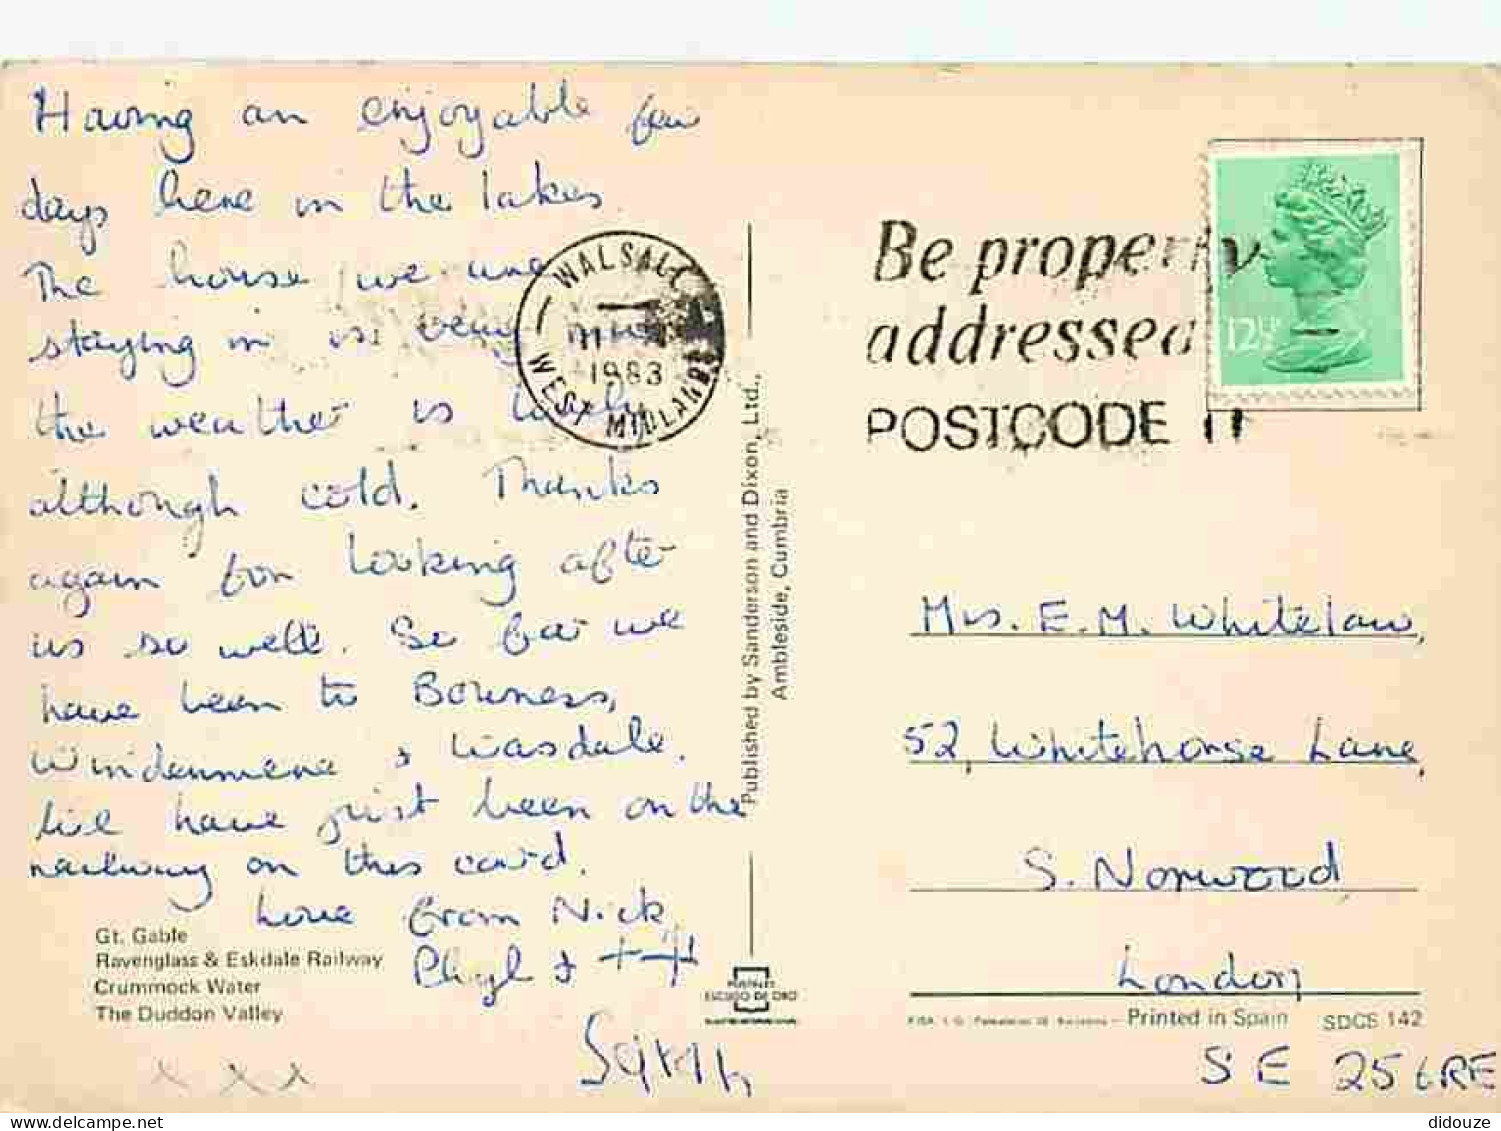 Having an enjoyable few
days here in the lakes.
The house we are
staying in is very
the weather is lovely
although cold. Thanks
again for looking after
us so well. So far we
have been to Bowness,
Windermere & Wasdale.
We have just been on the
railway on this card.
Love from Nick,
Phyl &
Gt. Gable
Ravenglass & Eskdale Railway
Crummock Water
The Duddon Valley
x x x
WALSALL
1983
WEST MIDLANDS
Published by Sanderson and Dixon, Ltd.,
Ambleside, Cumbria
POSTALES
ESCUDO DE ORO
Be properly
addressed
POSTCODE IT
12½
Mrs. E. M. Whitelaw,
52, Whitehorse Lane,
S. Norwood
London
Printed in Spain SDCS 142
SE 25 6RE
didouze